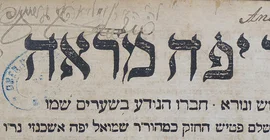 An
ר יפה מראה
ש ונורא · חברו הנודע בשערים שמו
שלם פטיש החזק כמהורר שמואל יפה אשכנזי נרו